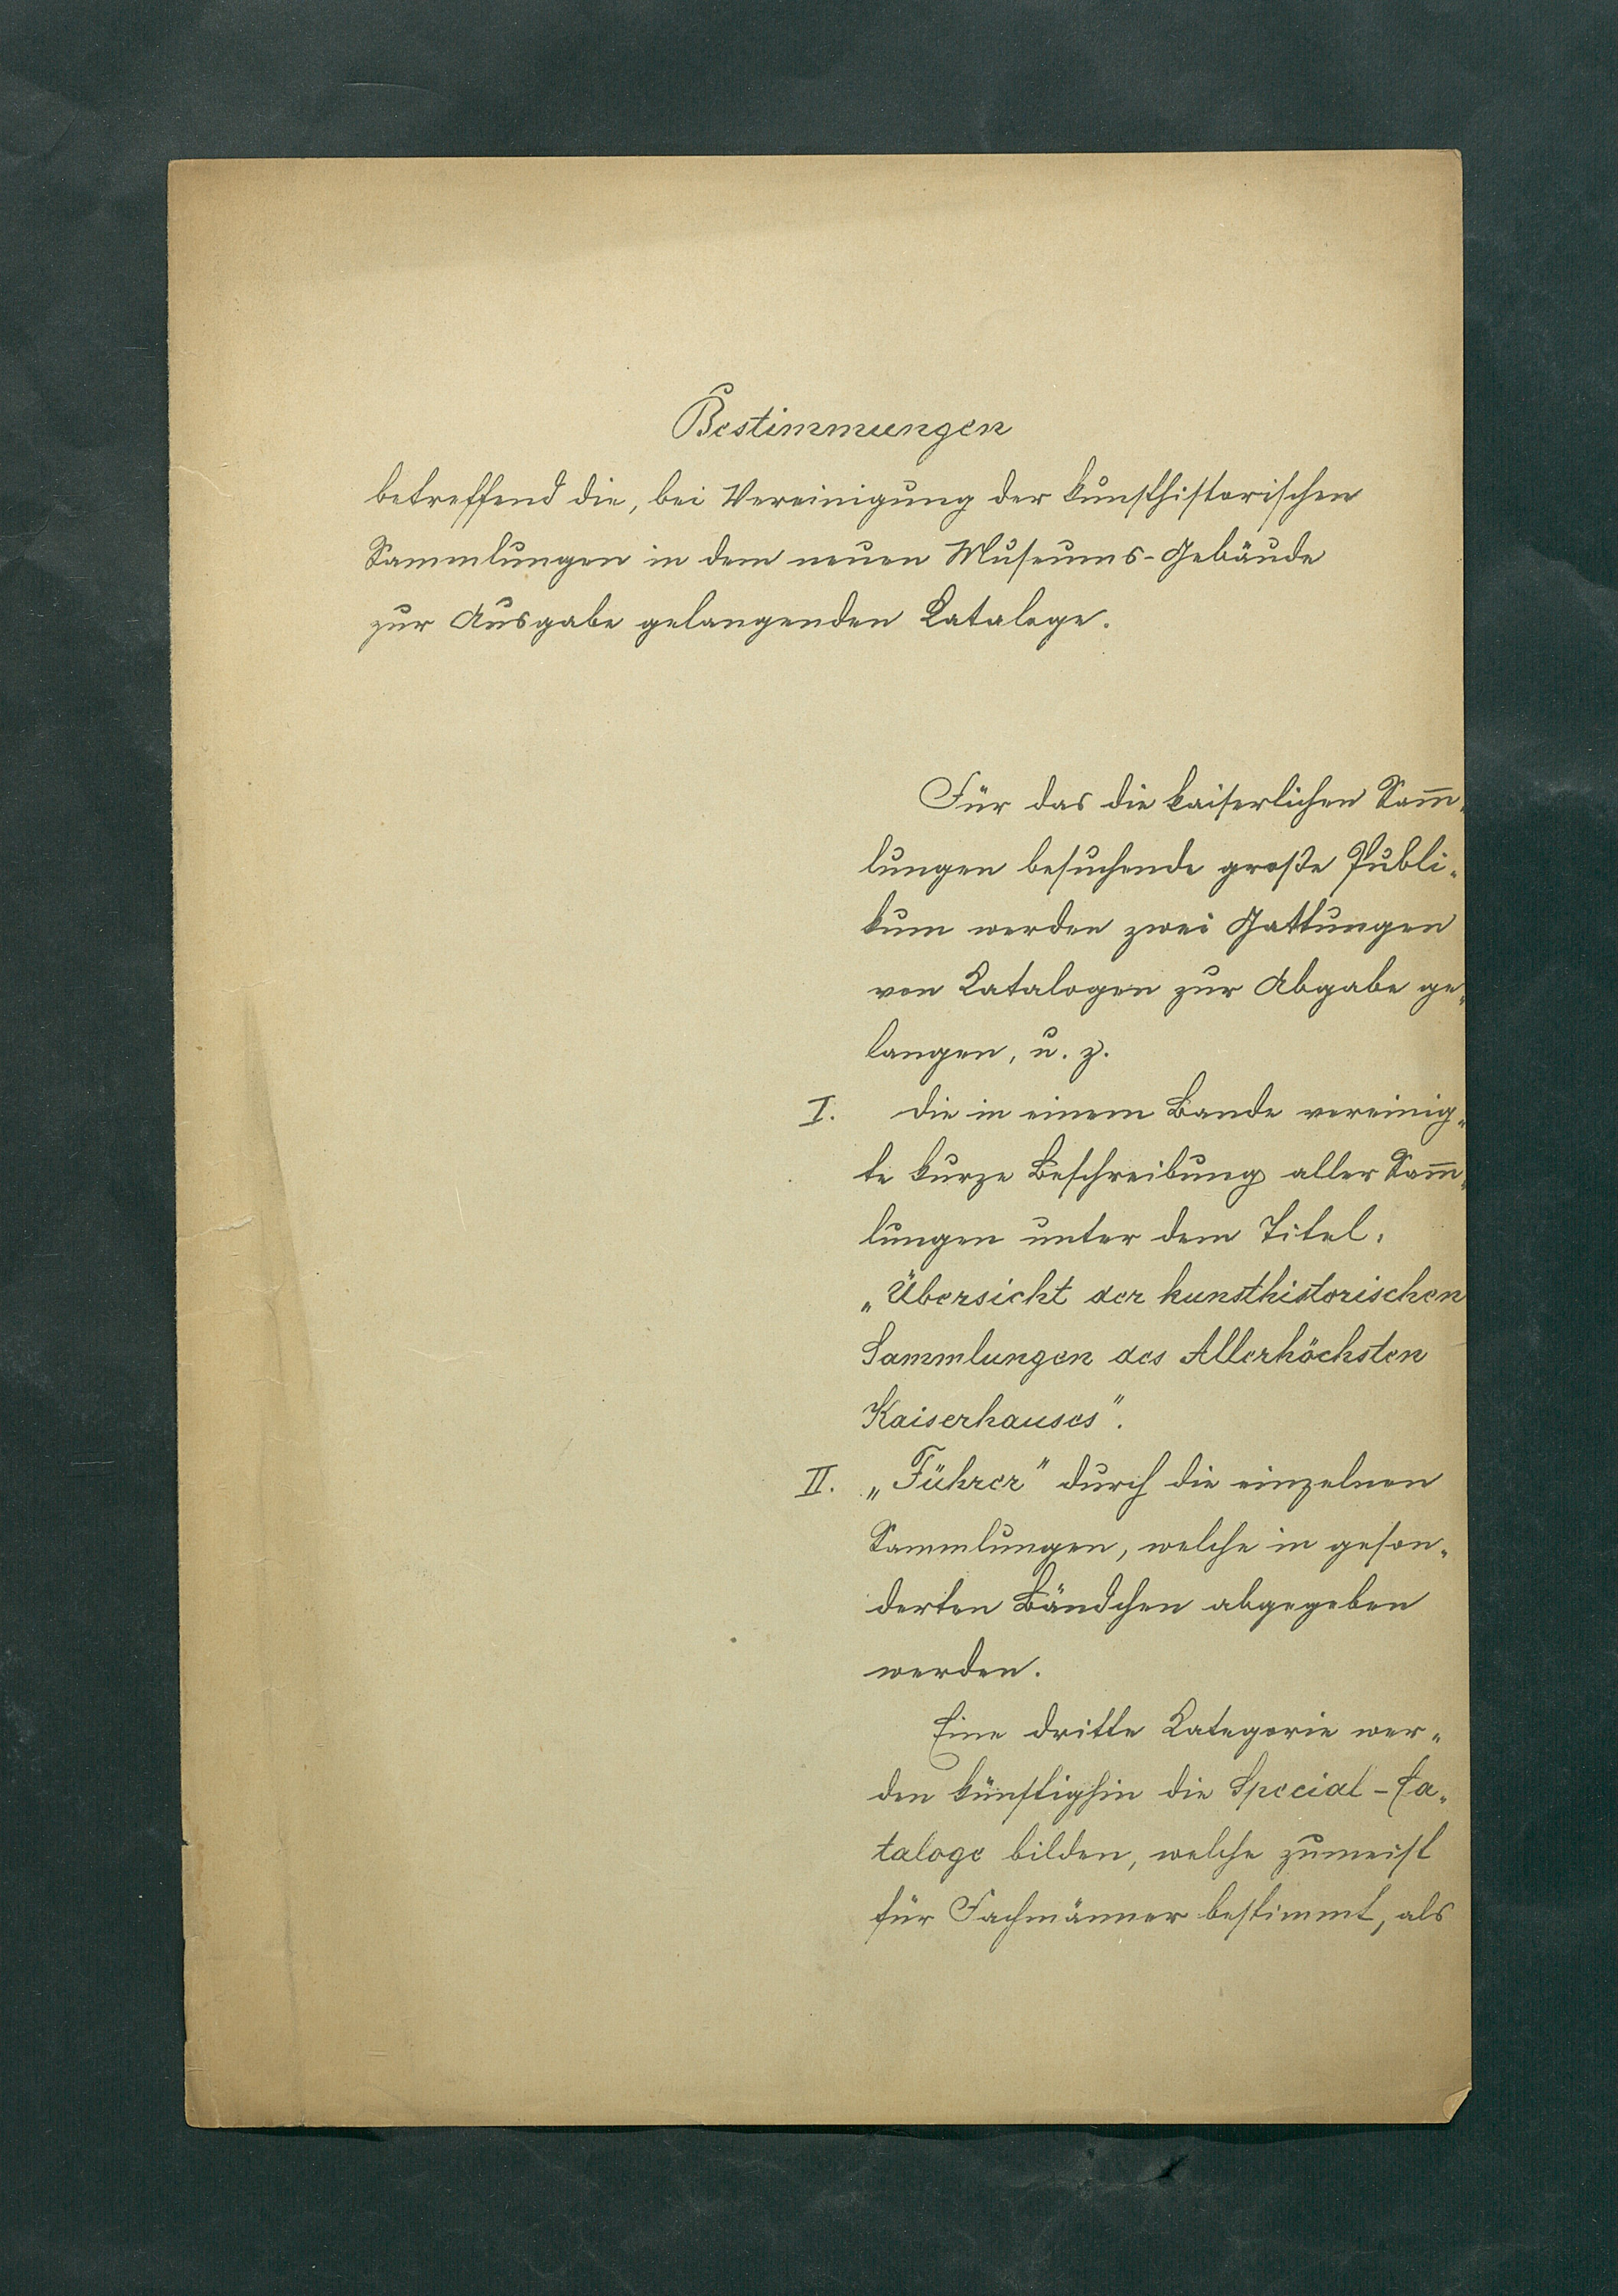 Bestimmungen
betreffend die, bei Vereinigung der kunsthistorischen
Sammlungen in dem neuen Museums-Gebäude
zur Ausgabe gelangenden Kataloge.
Für das die kaiserlichen Sam̅„
lungen besuchende große Publi„
kum werden zwei Gattungen
von Katalogen zur Abgabe ge„
langen, u. z.
I. die in einem Bande vereinig„
te kurze Beschreibung aller Sam̅„
lungen unter dem Titel:
„Übersicht der kunsthistorischen
Sammlungen des Allerhöchsten
Kaiserhauses".
II. „Führer" durch die einzelnen
Sammlungen, welche in geson„
derten Bändchen abgegeben
werden.
Eine dritte Kategorie wer„
den künftighin die Special-Ca„
taloge bilden, welche zumeist
für Fachmänner bestimmt, als